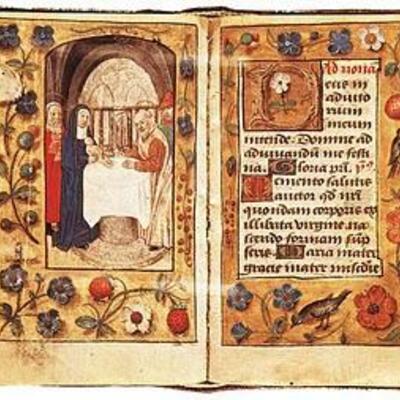 Ad nona
eus in
adiuto
rium
meum
intende. Domine ad
adiuuandū me fesi
na. Gloria pr̄i. ps̄
Memento salutis
auctor qd̄ nr̄i
quondam corporis ex
illibata virgine na
scendo formam sūp
seris. Maria mater
gracie mater misedie